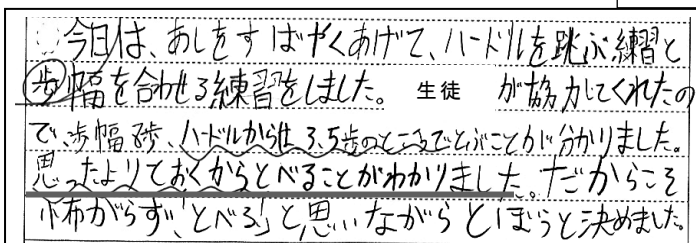 今日は、あしをすばやくあげて、ハードルを跳ぶ練習と
歩幅を合わせる練習をしました。 生徒 が協力してくれたの
で、歩幅 、ハードルからは3.5歩のところでとぶことが分かりました。
思ったよりておくからとべることがわかりました。だからこそ
怖がらず「とべる」と思いながらとぼうと決めました。